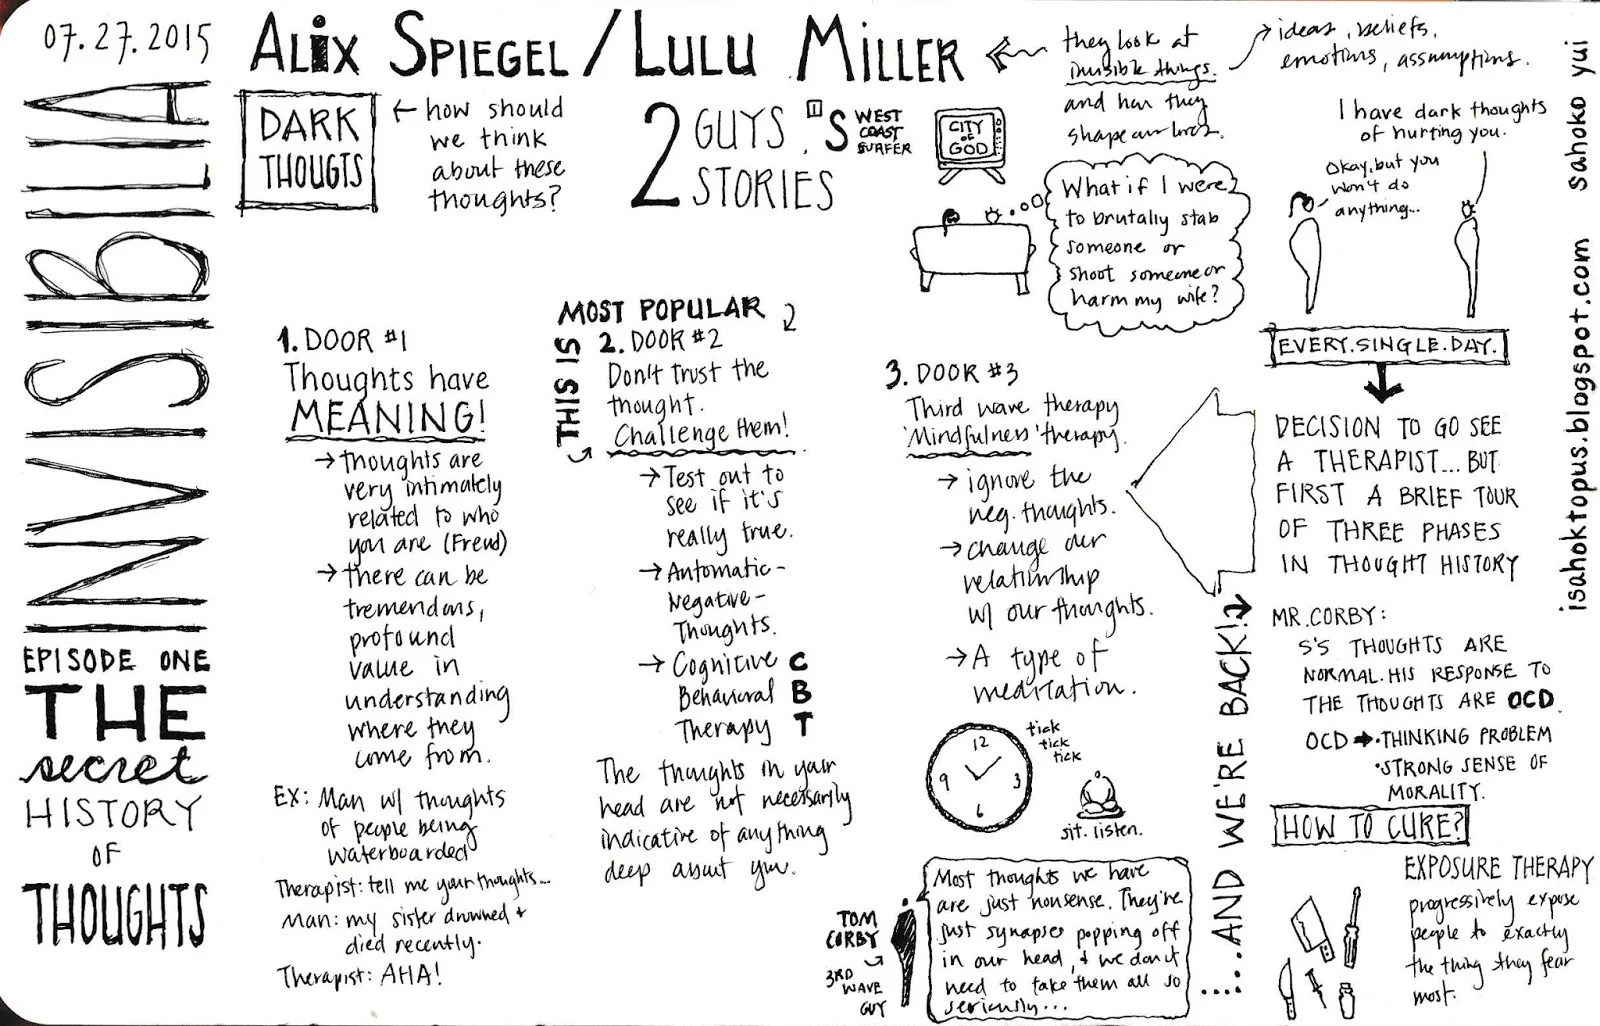 07.27.2015
INVISIBILIA
EPISODE ONE
THE
secret
HISTORY
OF
THOUGHTS
ALiX SPIEGEL / LULU MILLER
they look at
invisible things.
and how they
shape our lives.
ideas, beliefs,
emotions, assumptions.
DARK
THOUGTS
how should
we think
about these
thoughts?
2 GUYS
STORIES
1
'S
WEST
COAST
SURFER
CITY
OF
GOD
What if I were
to brutally stab
someone or
shoot someone or
harm my wife?
I have dark thoughts
of hurting you.
Okay, but you
won't do
anything...
EVERY.SINGLE.DAY.
DECISION TO GO SEE
A THERAPIST... BUT
FIRST A BRIEF TOUR
OF THREE PHASES
IN THOUGHT HISTORY
1. DOOR #1
Thoughts have
MEANING!
→ thoughts are
very intimately
related to who
you are (Freud)
→ there can be
tremendous,
profound
value in
understanding
where they
come from.
EX: Man w/ thoughts
of people being
waterboarded
Therapist: tell me your thoughts...
Man: my sister drowned +
died recently.
Therapist: AHA!
THIS IS
MOST POPULAR
2. DOOR #2
Don't trust the
thought.
Challenge them!
→ Test out to
see if it's
really true.
→ Automatic-
Negative-
Thoughts.
→ Cognitive C
Behavioral B
Therapy T
The thoughts in your
head are not necessarily
indicative of anything
deep about you.
3. DOOR #3
Third wave therapy
'Mindfulness' therapy.
→ ignore the
neg. thoughts.
→ change our
relationship
w/ our thoughts.
→ A type of
meditation.
12
3
6
9
tick
tick
tick
sit. listen.
TOM
CORBY
3RD
WAVE
GUY
Most thoughts we have
are just nonsense. They're
just synapses popping off
in our head, + we don't
need to take them all so
seriously...
.....AND WE'RE BACK!
MR.CORBY:
S'S THOUGHTS ARE
NORMAL. HIS RESPONSE TO
THE THOUGHTS ARE OCD.
OCD → ·THINKING PROBLEM
·STRONG SENSE OF
MORALITY.
HOW TO CURE?
EXPOSURE THERAPY
progressively expose
people to exactly
the thing they fear
most.
isahoktopus.blogspot.com sahoko yui